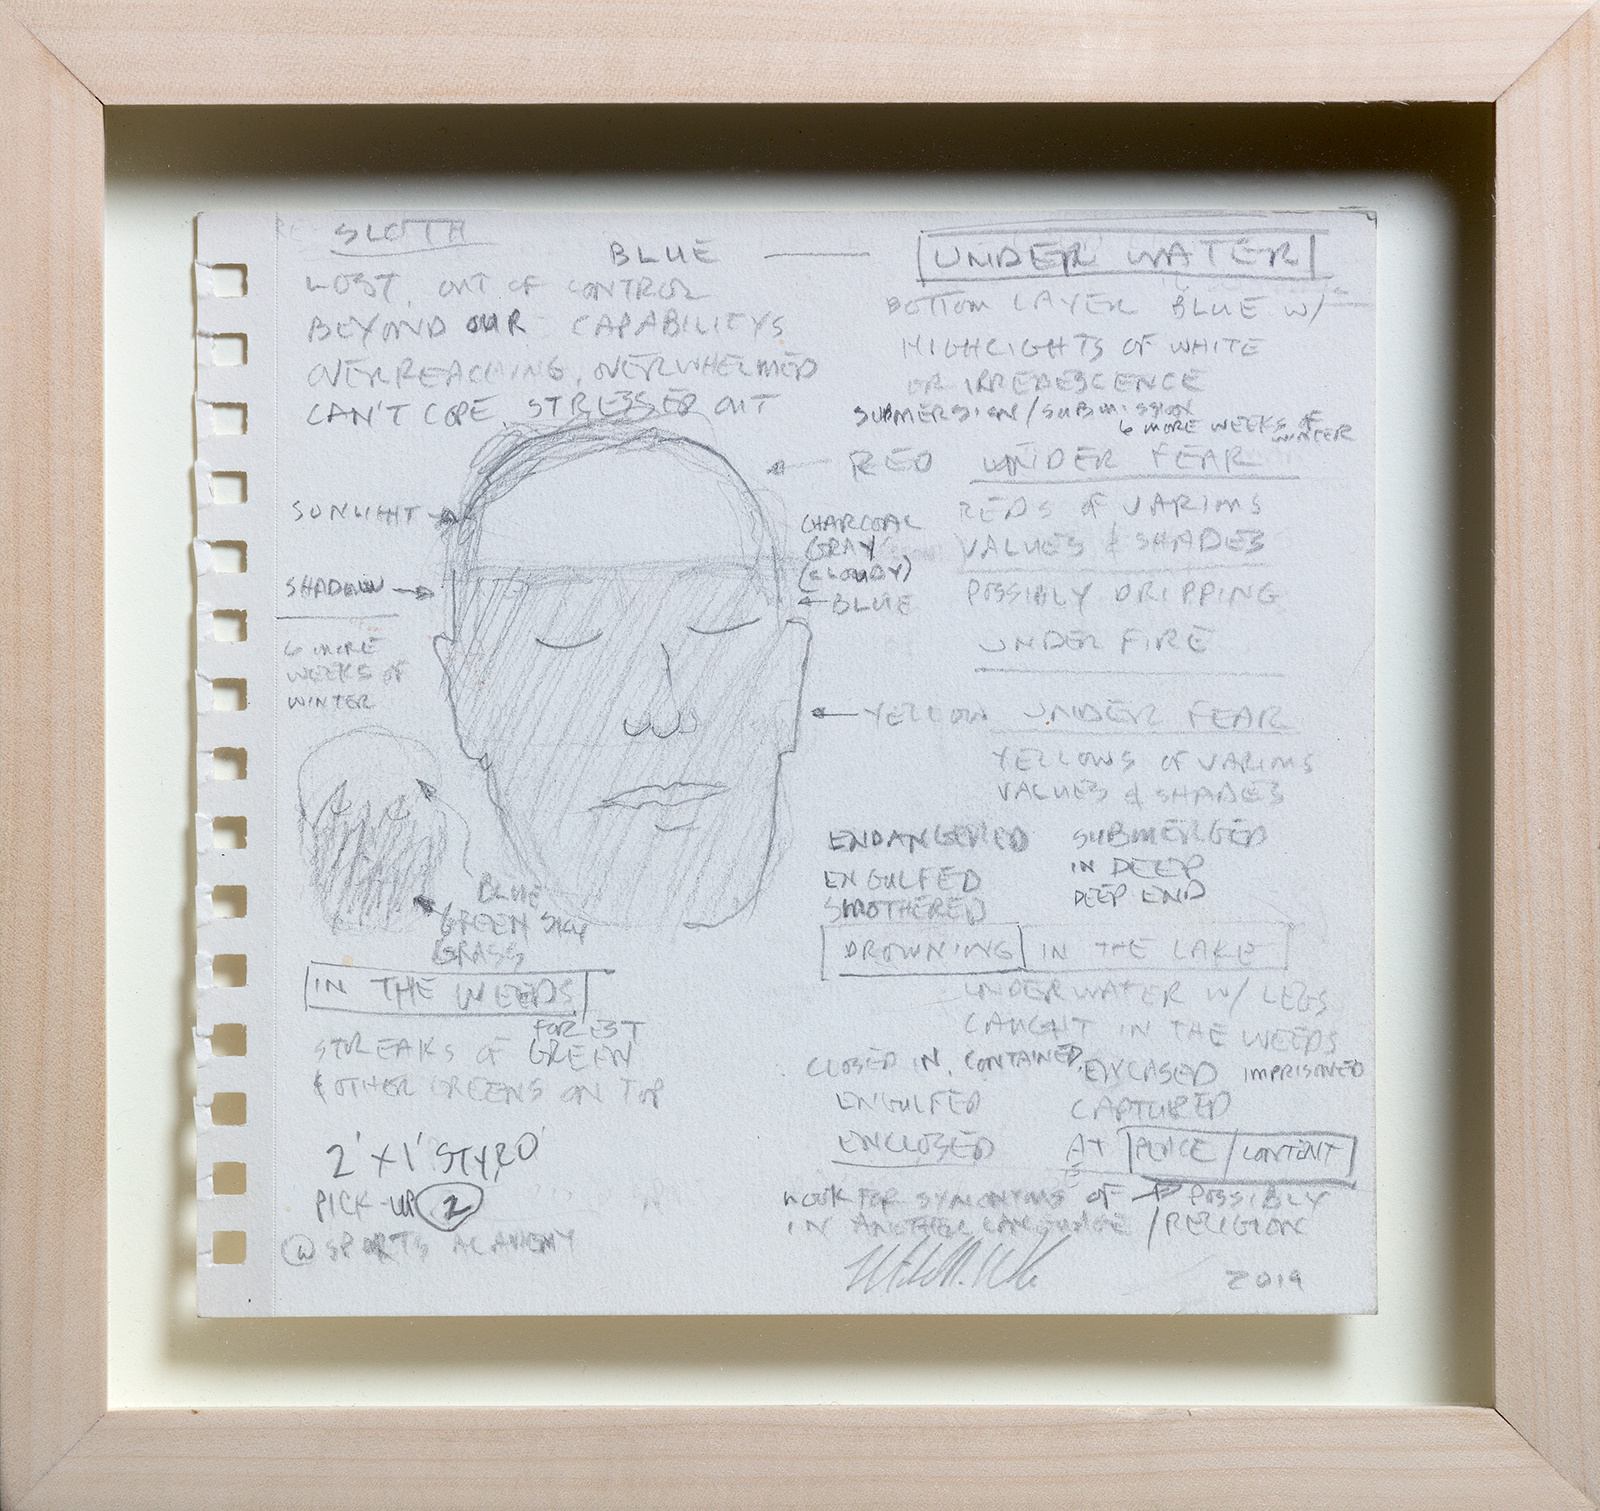 RE SLOTH
BLUE — UNDER WATER
LOST, OUT OF CONTROL
BEYOND OUR CAPABILITYS
OVERREACHING, OVERWHELMED
CAN'T COPE, STRESSED OUT
BOTTOM LAYER BLUE W/
HIGHLIGHTS OF WHITE
OR IRREDESCENCE
SUBMERSION/SUBMISSION
6 MORE WEEKS OF
WINTER
RED UNDER FEAR
REDS OF VARIOUS
VALUES & SHADES
POSSIBLY DRIPPING
UNDER FIRE
SUNLIGHT
SHADOW
6 MORE
WEEKS OF
WINTER
CHARCOAL
GRAY
(CLOUDY)
BLUE
YELLOW UNDER FEAR
YELLOWS OF VARIOUS
VALUES & SHADES
ENDANGERED
ENGULFED
SMOTHERED
SUBMERGED
IN DEEP
DEEP END
BLUE
GREEN SKY
GRASS
DROWNING IN THE LAKE
UNDERWATER W/ LEGS
CAUGHT IN THE WEEDS
IN THE WEEDS
FOREST
STREAKS OF GREEN
& OTHER GREENS ON TOP
CLOSED IN, CONTAINED, ENCASED IMPRISONED
ENGULFED CAPTURED
ENCLOSED AT PEACE/CONTENT
LOOK FOR SYNONYMS OF POSSIBLY
IN ANOTHER LANGUAGE/RELIGION
2' X 1' STYRO
PICK-UP 2
@ SPORTS ACADEMY
2019